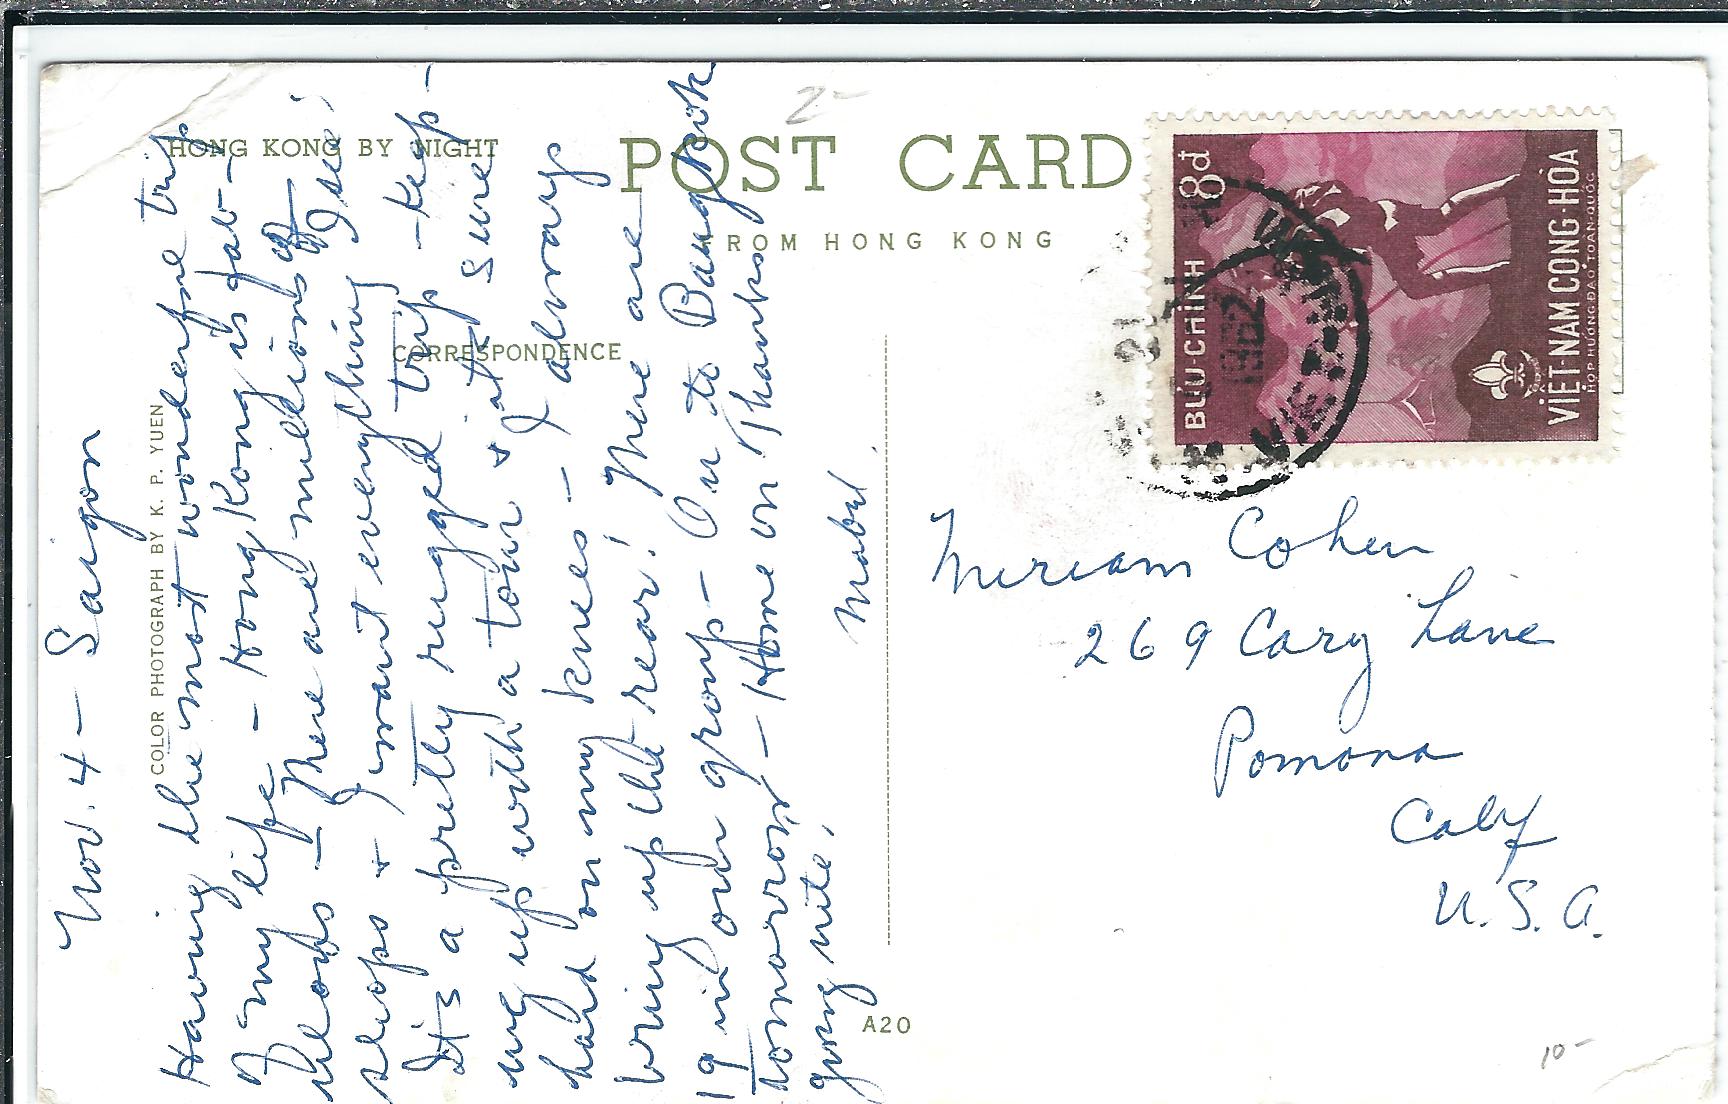 HONG KONG BY NIGHT
POST CARD
FROM HONG KONG
CORRESPONDENCE
COLOR PHOTOGRAPH BY K. P. YUEN
A20
2-
10-
Nov. 4 - Saigon
Having the most wonderful trip
of my life - Hong Kong is fab-
ulous - There are millions of
shops + I want everything I see;
It's a pretty rugged trip - keep-
ing up with a tour + at sure
hard on my knees - I always
bring up the rear! There are
19 in our group - On to Bangkok
tomorrow - Home on Thanks
giving nite!
Mabel
Miriam Cohen
269 Cary Lane
Pomona
Calif
U.S.A.
BƯU-CHÍNH 8đ
VIỆT-NAM CỘNG-HÒA
HỌP HƯỚNG-ĐẠO TOÀN-QUỐC
1962